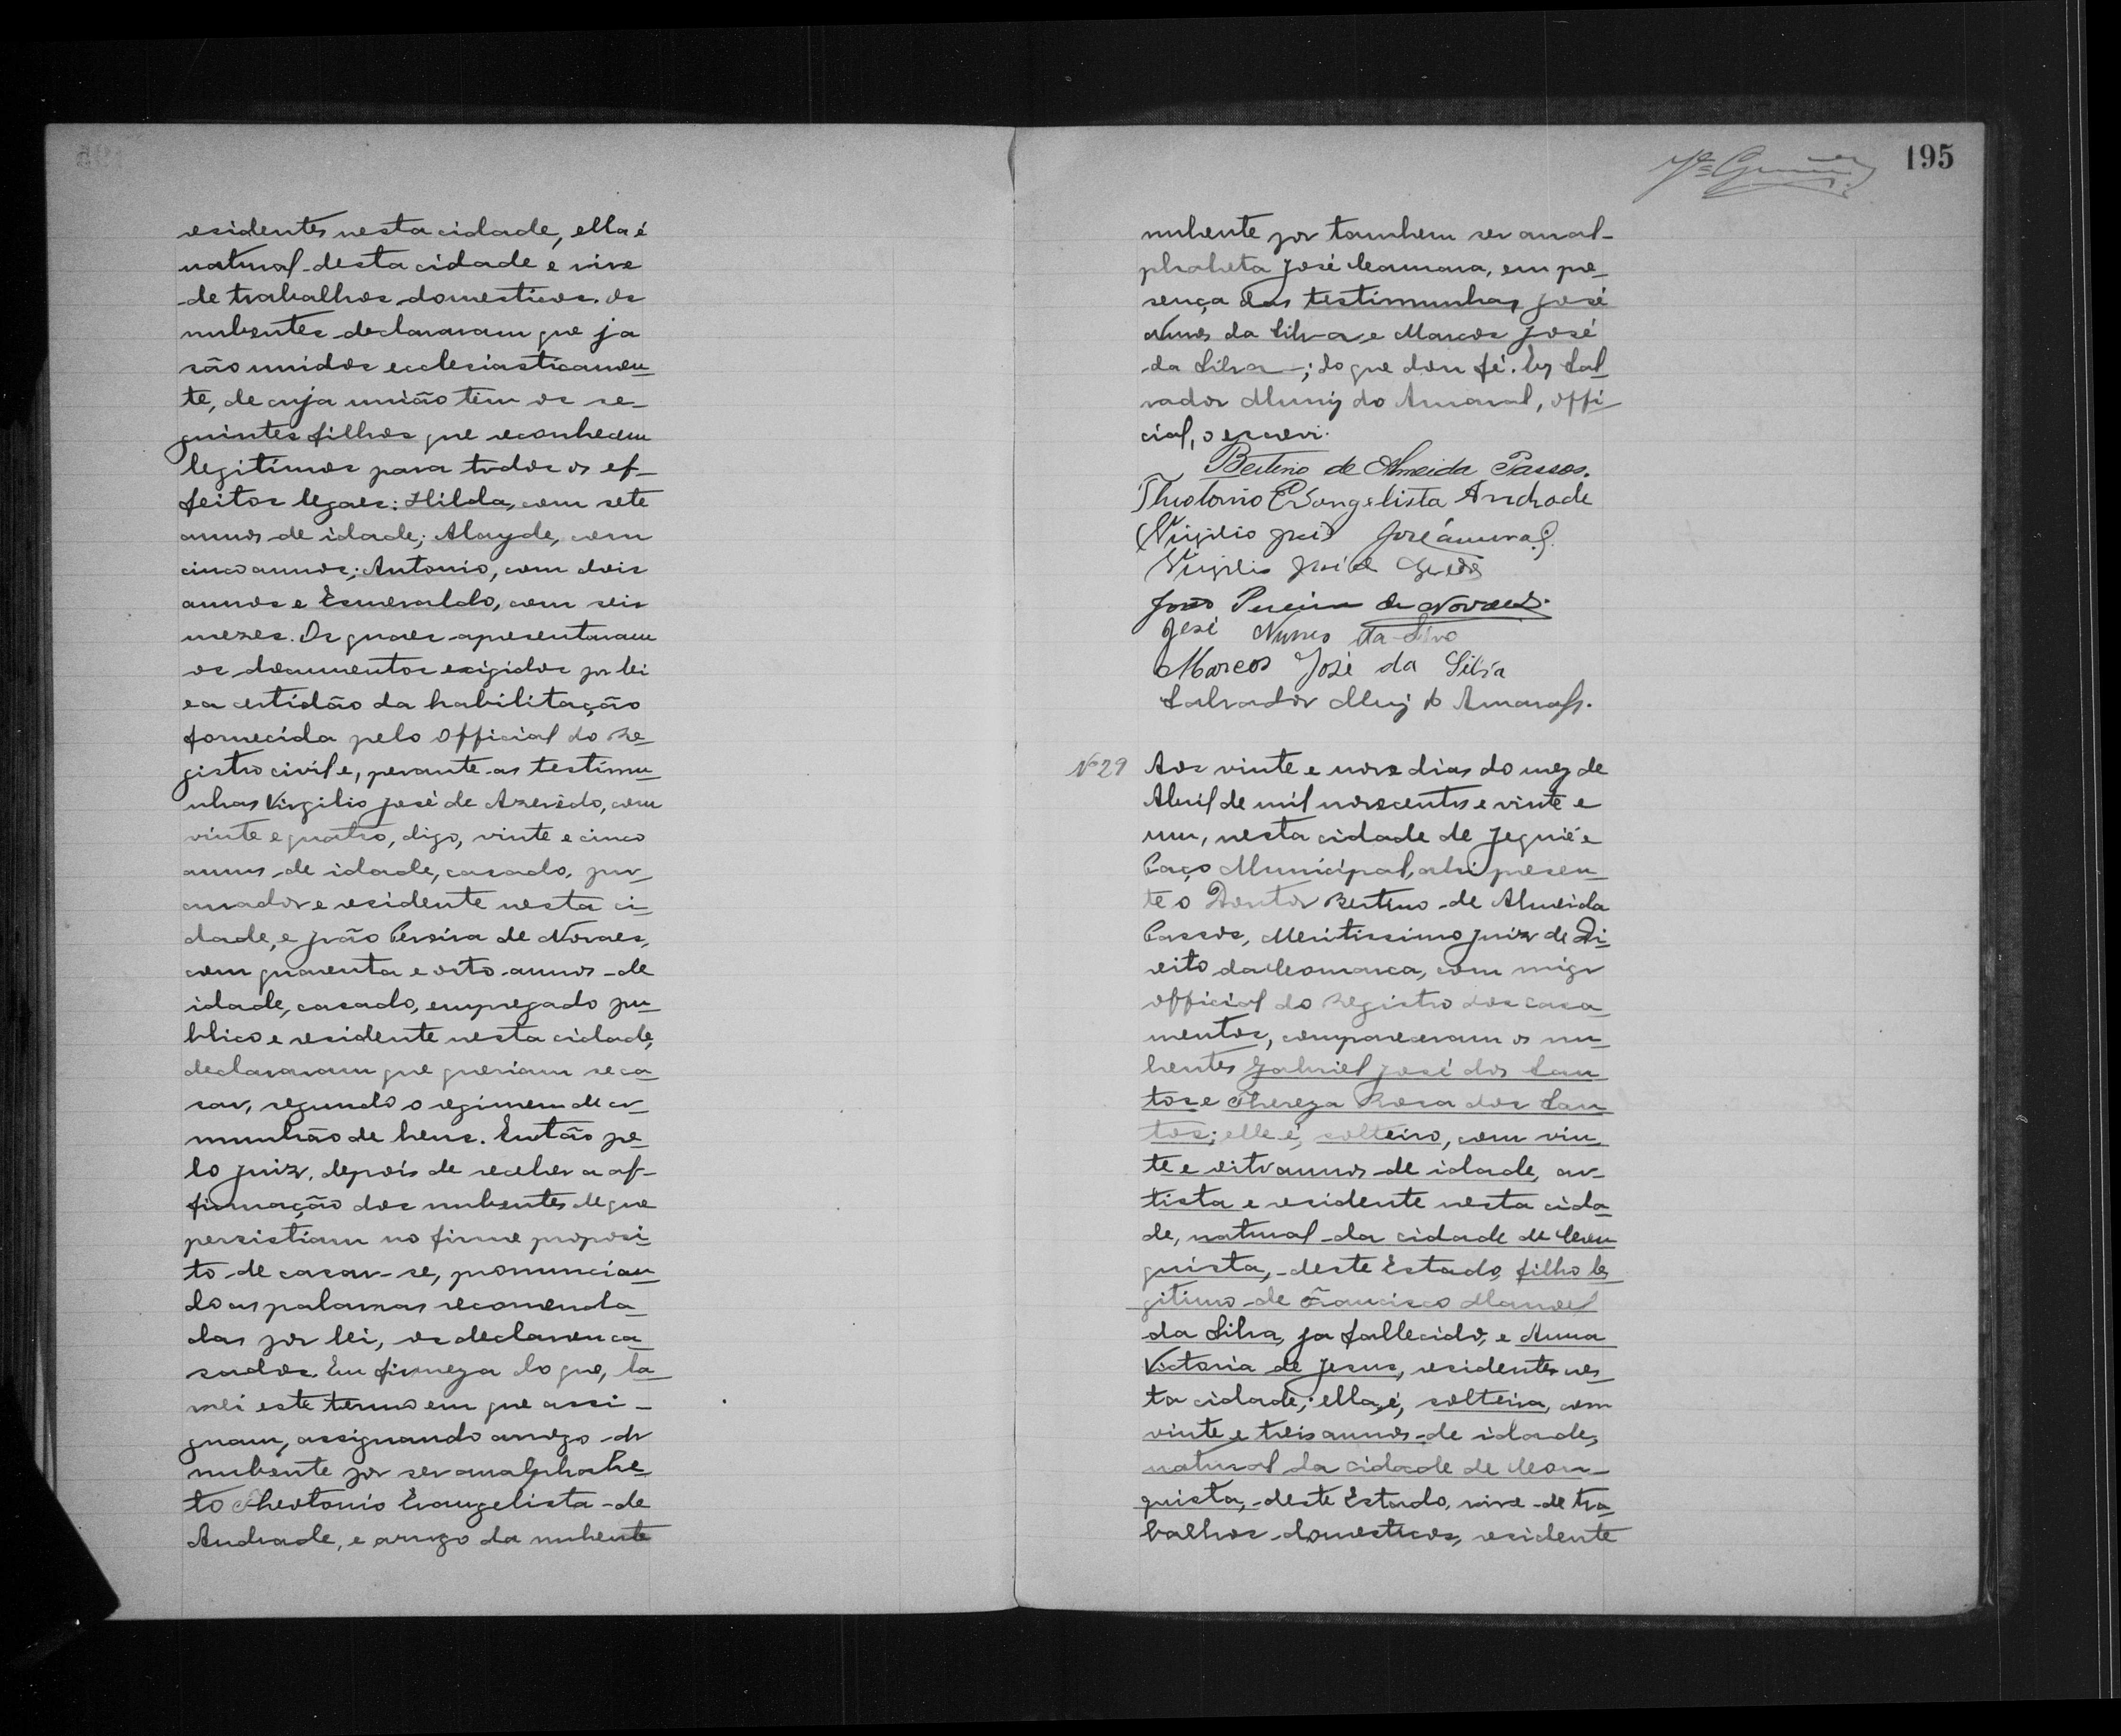 residentes nesta cidade, ella é
natural desta cidade e vive
de trabalhos domesticos. Os
nubentes declararam que ja
são unidos ecclesiasticamen-
te, de cuja união tem os se-
guintes filhos que reconhecem
legitimos para todos os ef-
feitos legaes: Hilda, com sete
annos de idade; Alayde, com
cinco annos; Antonio, com dois
annos e Esmeraldo, com seis
mezes. Os quaes apresentaram
os documentos exigidos por lei
e a certidão da habilitação
fornecida pelo Official do Re-
gistro civil e, perante as testimu-
nhas Virgilio José de Azevêdo, com
vinte e quatro, digo, vinte e cinco
annos de idade, casado,
e residente nesta ci-
dade, e João Pereira de Novaes,
com quarenta e oito annos de
idade, casado, empregado pu-
blico e residente nesta cidade,
declararam que queriam se ca-
sar, segundo o regimen de co-
mmunhão de bens. Então pe-
lo juiz, depois de receber a af-
firmação dos nubentes de que
persistiam no firme proposi-
to de casar-se, pronuncian-
do as palavras recomenda-
das por lei, os declarou ca-
sados. Em firmeza do que, la-
vrei este termo em que assi-
gnam, assignando arrogo do
nubente por ser analphabe-
to Theotonio Evangelista de
Andrade, e arrogo da nubente
195
nubente por tambem ser anal-
phabeta José Camara, em pre-
sença das testimunhas, José
Nunes da Silva, e Marcos José
da Silva; do que dou fé. Eu Sal-
vador Muniz do Amaral, offi-
cial, o escrevi.
Bertino de Almeida Passos.
Theotonio Evangelista Andrade
Virgilio José José Camara
Virgilio José de Azevedo
João Pereira de Novaes.
José Nunes da Silva
Marcos José da Silva
Salvador Muniz do Amaral.
Nº 29 Aos vinte e nove dias do mez de
Abril de mil novecentos e vinte e
um, nesta cidade de Jequié e
Paço Municipal, ahi presen-
te o Doutor Bertino de Almeida
Passos, Meritissimo juiz de Di-
reito da Comarca, com migo
official do Registro dos casa-
mentos, compareceram os nu-
bentes Gabriel José dos San-
tos e Thereza Rosa dos San-
tos; elle é, solteiro, com vin-
te e oito annos de idade, ar-
tista e residente nesta cida-
de, natural da cidade de Con-
quista, deste Estado, filho le-
gitimo de Francisco Manoel
da Silva, ja fallecido, e Anna
Victoria de Jesus, residentes nes-
ta cidade; ella, é, solteira, com
vinte e treis annos de idade,
natural da cidade de Con-
quista, deste Estado, vive de tra-
balhos domesticos, residente